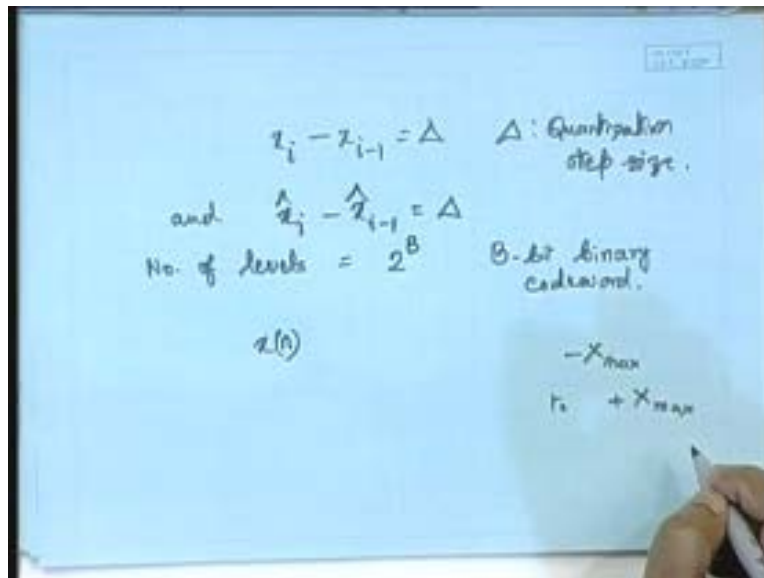 x_i − x_{i−1} = Δ   Δ: Quantization
step size.
and x̂_i − x̂_{i−1} = Δ
No. of levels = 2^B   B-bit binary
codeword.
x(n)
−X_max
to +X_max